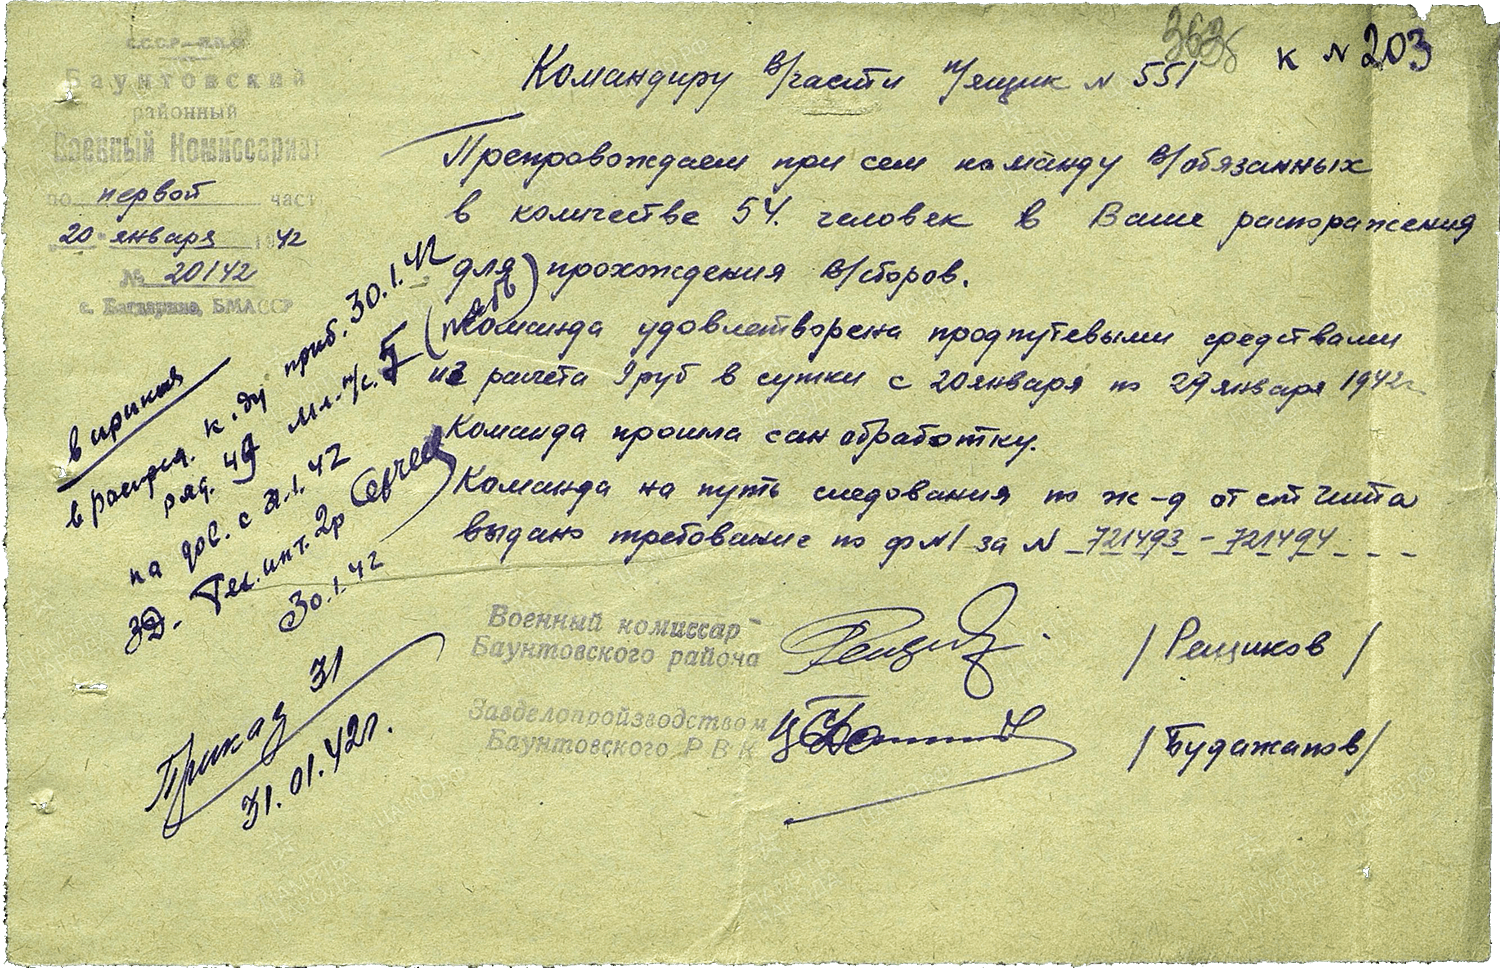 363б
к № 203
С.С.С.Р.
Баунтовский
районный
Военный Комиссариат
по первой част
"20" января 1942
№ 20142
с. Багдарино, БМАССР
Командиру в/части п/ящик № 551
Препровождаем при сем команду в/обязанных
в количестве 54. человек в Ваше распоражения
для прохождения в/сборов.
Команда удовлетворена продпутевыми средствами
из расчета 9 руб в сутки с 20 января по 29 января 1942 г.
Команда прошла сан обработку.
Команда на путь следования по ж-д от ст Чита
выдано требование по ф №1 за № 721493 - 721494
Военный комиссар
Баунтовского района
/ Рещиков /
Завделопроизводством
Баунтовского Р В К
/ Будажапов /
в приказ
к-ду приб. 30.1.42
ряд. 49 мл. н/с. 5 (пять)
на дов. с 31.1.42
Тех. инт. 2р
30.1.42
Приказ 31
31.01.42г.